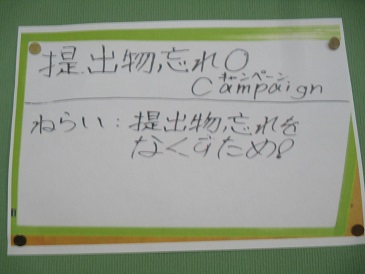 提出物忘れ0
キャンペーン
Campaign
ねらい:提出物忘れを
なくすため!